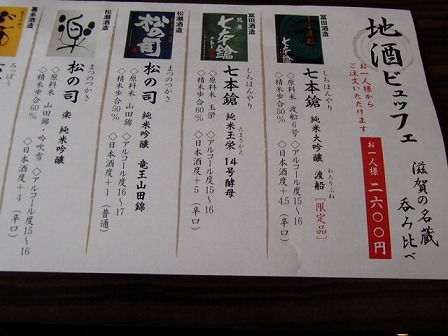 地酒ビュッフェ
滋賀の名蔵
呑み比べ
お一人様から
ご注文いただけます
お一人様 二六〇〇円
冨田酒造
七本鎗
しちほんやり
七本鎗 純米大吟醸 渡船 [限定品]
わたりぶね
◇原料米 渡船6号 ◇アルコール度15〜16
◇精米歩合50% ◇日本酒度+4.5 (辛口)
冨田酒造
七本鎗
しちほんやり
七本鎗 純米玉栄 14号酵母
たまさかえ
◇原料米 玉栄 ◇アルコール度15〜16
◇精米歩合60% ◇日本酒度+5 (辛口)
松瀬酒造
松の司
まつのつかさ
松の司 純米吟醸 竜王山田錦
◇原料米 山田錦 ◇アルコール度16〜17
◇精米歩合50% ◇日本酒度+1 (普通)
松瀬酒造
楽
まつのつかさ
松の司 楽 純米吟醸
◇原料米 山田錦・吟吹雪 ◇アルコール度15〜16
◇精米歩合60% ◇日本酒度+4 (辛口)